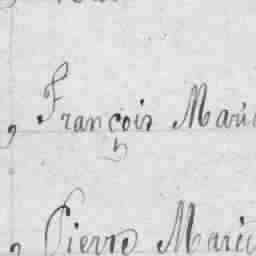 , François Marie
, Pierre Marie